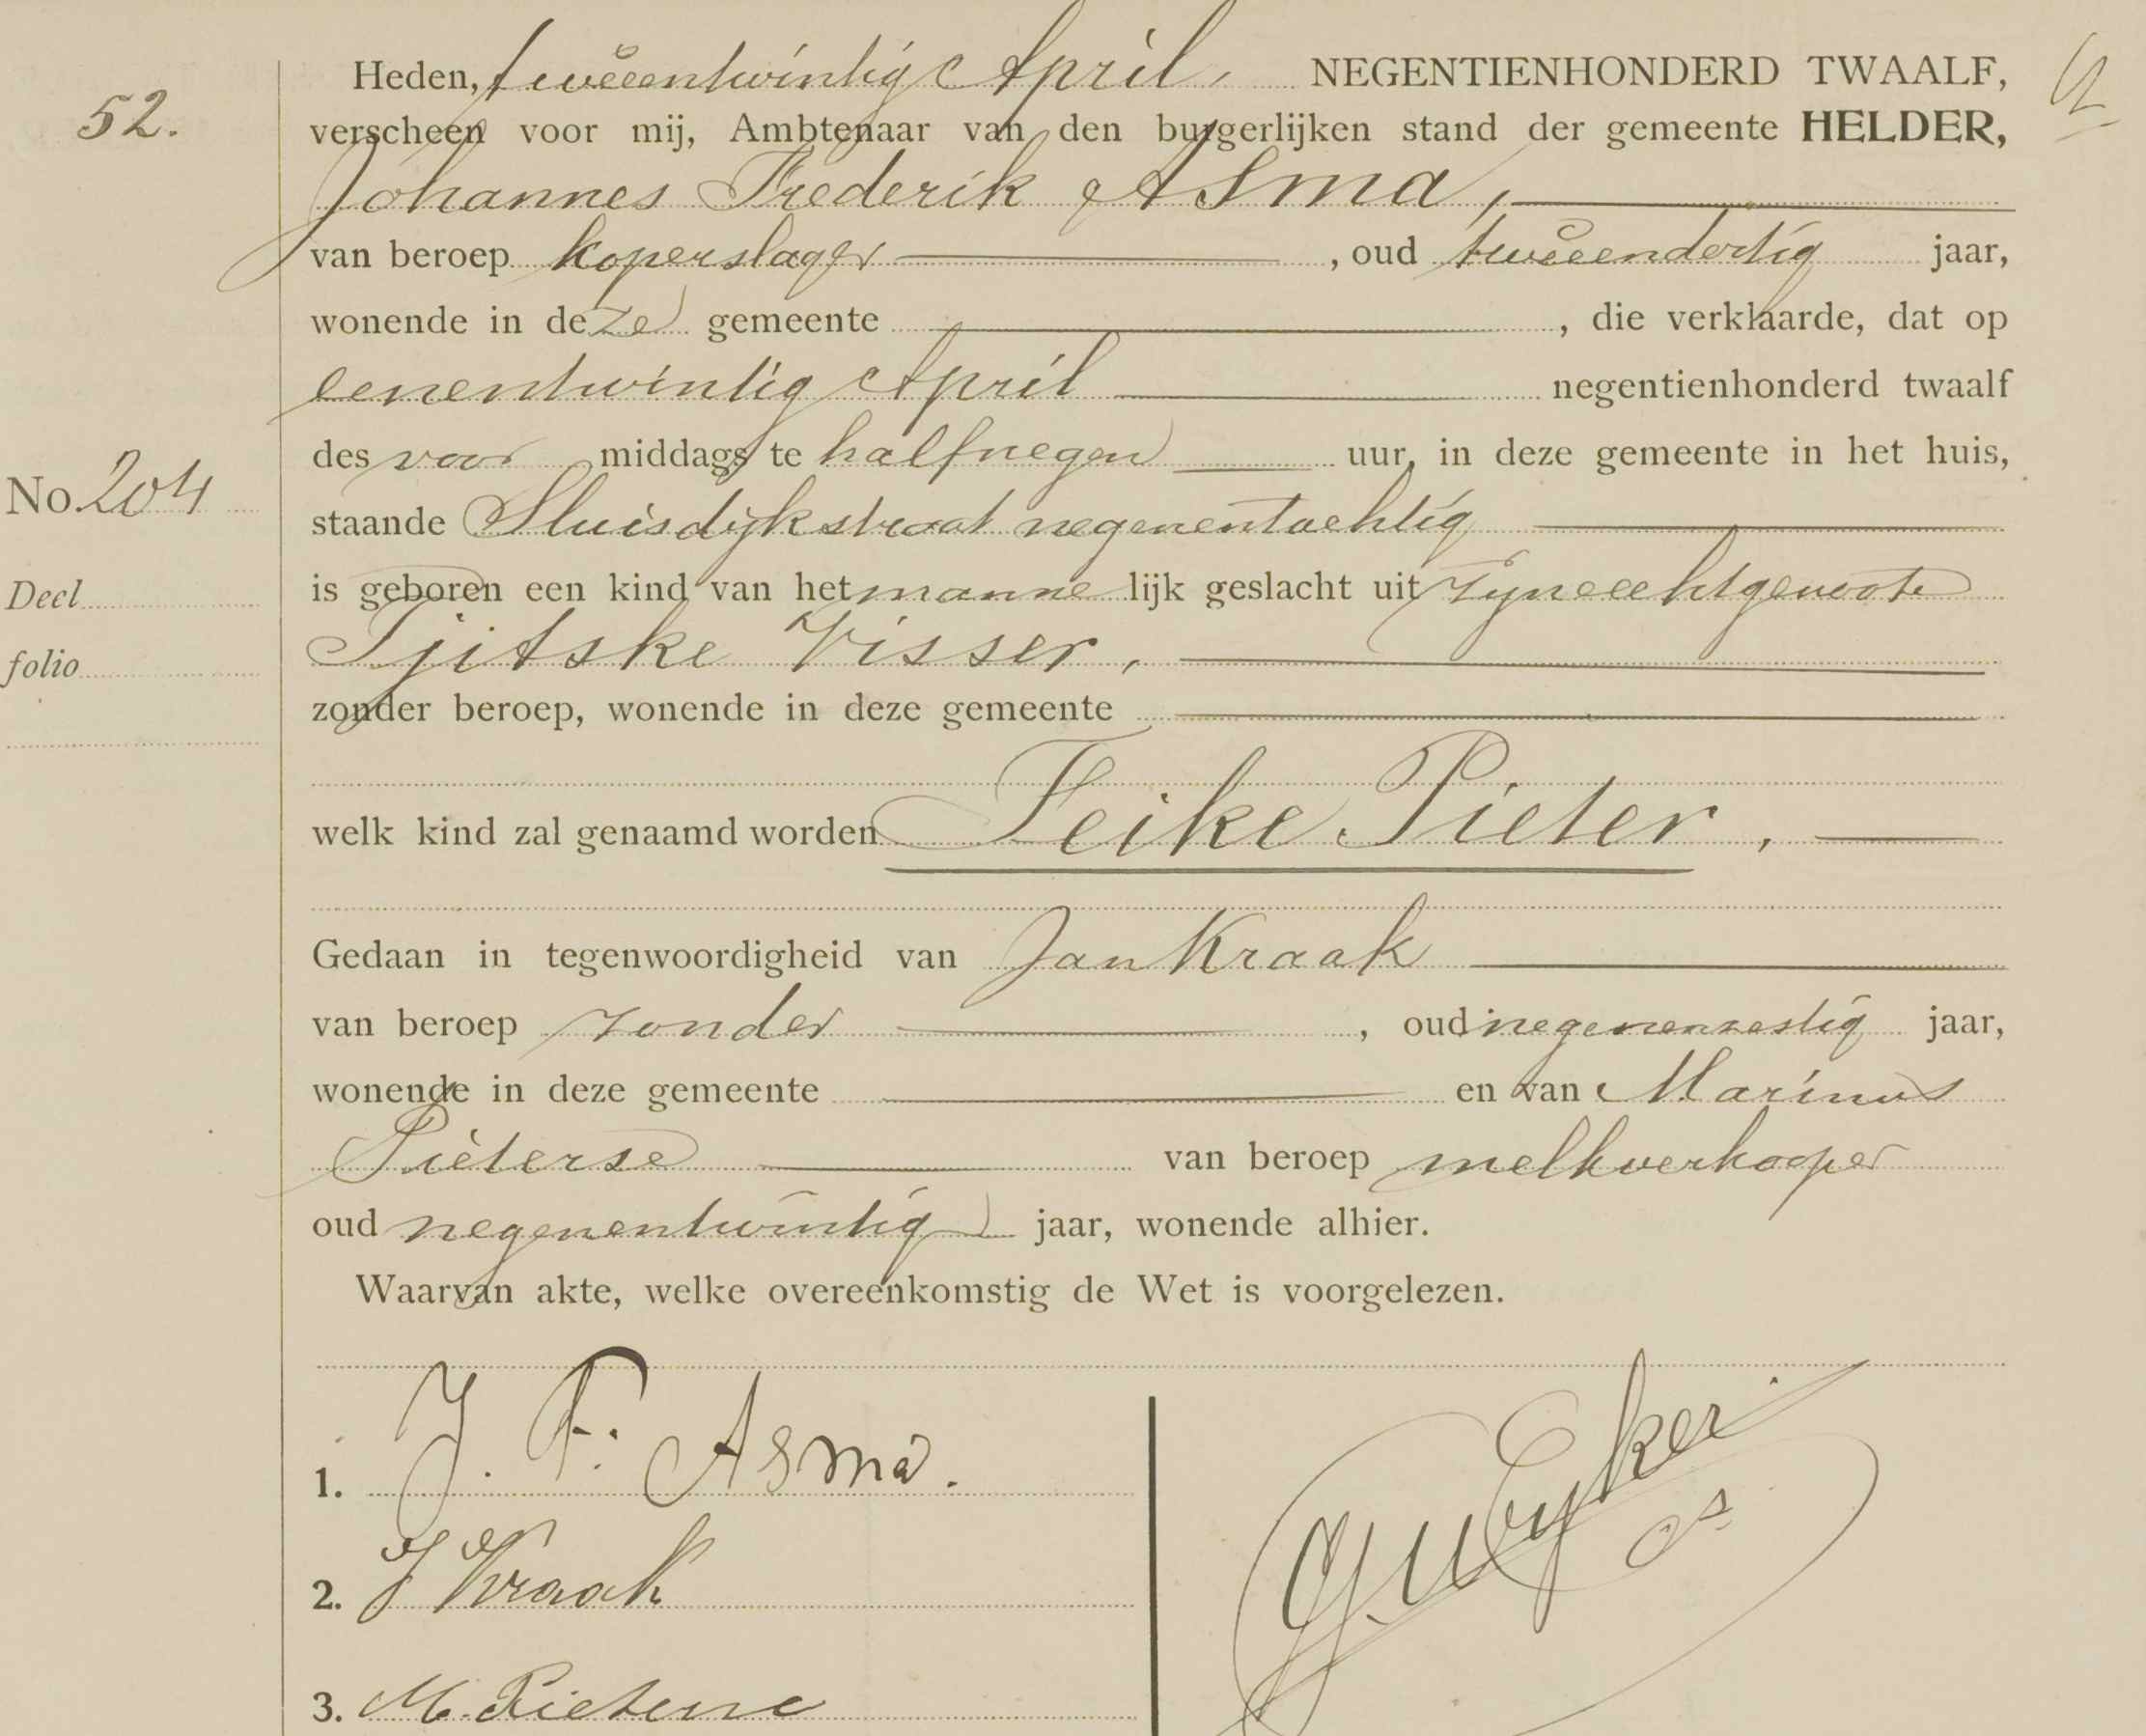 52.
Heden, tweeentwintig April, NEGENTIENHONDERD TWAALF,
verscheen voor mij, Ambtenaar van den burgerlijken stand der gemeente HELDER,
Johannes Frederik Asma,
van beroep koperslager, oud tweeendertig jaar,
wonende in deze gemeente, die verklaarde, dat op
eenentwintig April negentienhonderd twaalf
des voor middags te halfnegen uur, in deze gemeente in het huis,
No. 204
staande Sluisdijkstraat negenentachtig
Decl
is geboren een kind van het mannelijk geslacht uit zijne echtgenoote
folio
Tjitske Visser,
zonder beroep, wonende in deze gemeente
welk kind zal genaamd worden Feike Pieter,
Gedaan in tegenwoordigheid van Jan Kraak
van beroep zonder, oud negenenzestig jaar,
wonende in deze gemeente en van Marinus
Pieterse van beroep melkverkooper
oud negenentwintig jaar, wonende alhier.
Waarvan akte, welke overeenkomstig de Wet is voorgelezen.
1. J. F. Asma.
2. J Kraak
3. M. Pieterse